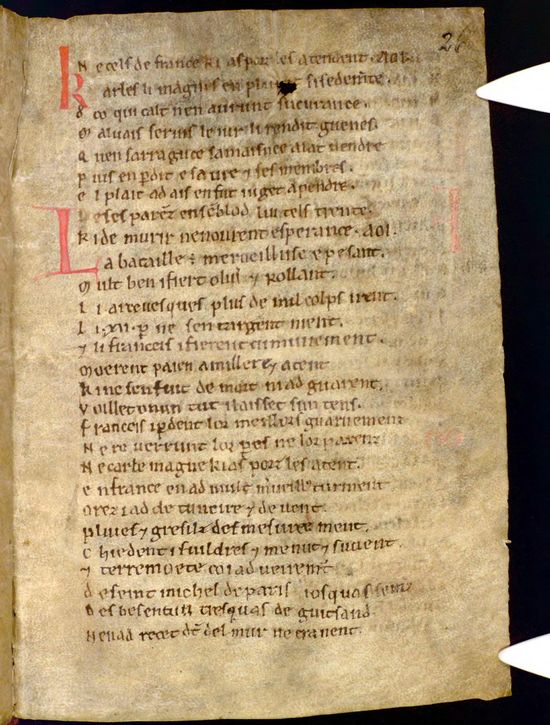 26
N e cels de france ki as porz les atendent. aoi.
K arles li magnes en pluret si se demẽte.
D e co qui calt nen aurunt sucurance.
M aluais seruis le iur li rendit guenes.
Q u en sarraguce sa maisnee alat uendre
P uis en ꝑdit e sa uie ⁊ ses membres.
E l plait ad ais en fut iuget a pendre.
D e ses parẽz ensẽblod lui tels trente.
K i de murir nen ourent esperance. aoi.
L a bataille ẽ merueilluse e pesant.
M ult ben i fiert oliũ ⁊ rollant.
L i arceuesques plus de mil colps i rent.
L i .xii. ꝑ ne sen targent nient.
⁊ li franceis i fierent cumunement.
M oerent paien a millers ⁊ a cent
K i ne senfuit de mort ni ad guarent.
V oillet o nun tut i laisset sun tens.
F ranceis i ꝑdent lor meillors guarnemenz
N e reuerrunt lor ꝑes ne lor parenz
N e carlemagne ki as porz les atent.
E n france en ad mult mũeillus turment.
O rez i ad de tuneire ⁊ de uent.
P luies ⁊ gresilz desmesureement.
C hiedent i fuildres ⁊ menut ⁊ suuent.
⁊ terremoete co i ad ueiremt̃
D e seint michel de paris iosquas seinz
D es besentun tresquas de guitsand.
N en ad recet dũt del mur ne crauent.